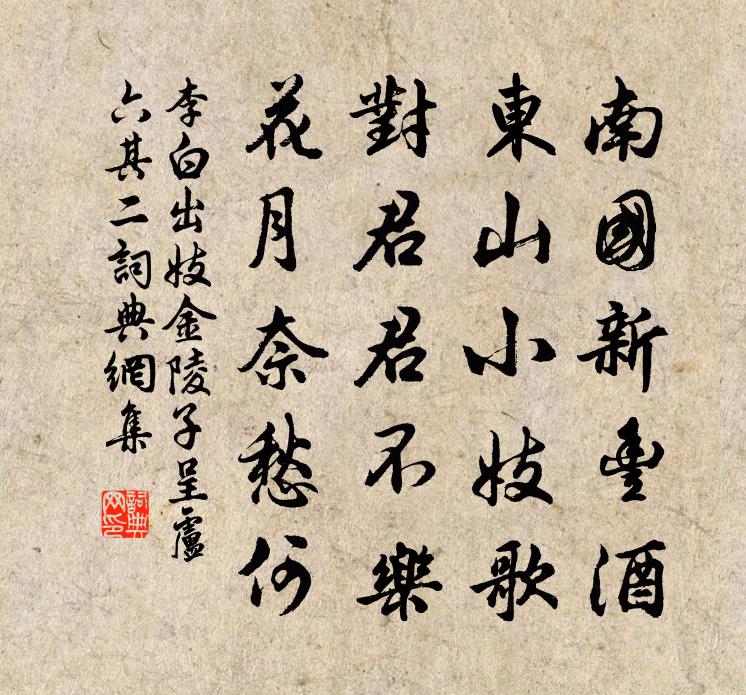 南國新豐酒
東山小妓歌
對君君不樂
花月奈愁何
李白出妓金陵子呈盧
六其二詞典網集
詞典
网印